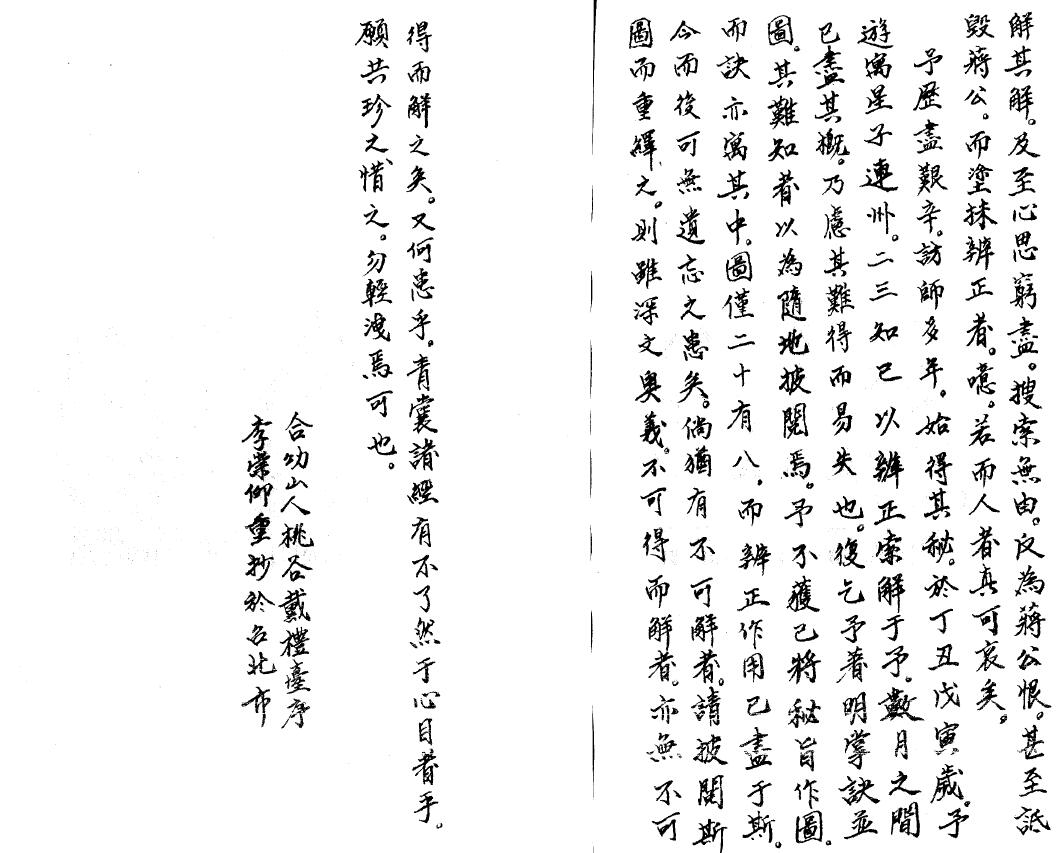 解其解。及至心思窮盡。搜索無由。反為蔣公恨。甚至詆
毀蔣公。而塗抹辨正者。噫。若而人者真可哀矣。
予歷盡艱辛。訪師多年。始得其秘。於丁丑戊寅歲。予
遊寓星子連州。二三知已以辨正索解于予。數月之間
已盡其概。乃慮其難得而易失也。復乞予著明掌訣並
圖。其難知者以為隨地披閱焉。予不獲已將秘旨作圖。
而訣亦寓其中。圖僅二十有八。而辨正作用已盡于斯。
今而後可無遺忘之患矣。倘猶有不可解者。請披閱斯
圖而重繹之。則雖深文奧義。不可得而解者。亦無不可
得而解之矣。又何患乎。青囊諸經有不了然于心目者乎。
願共珍之惜之。勿輕洩焉可也。
合幼山人桃谷戴禮臺序
李崇仰重抄於台北市